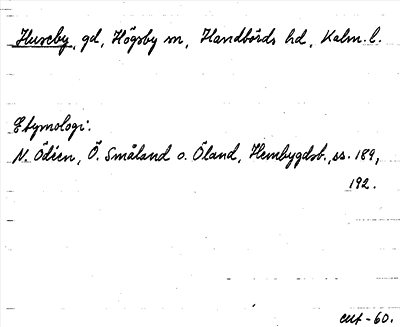 Huseby, gd, Högsby sn, Handbörds hd, Kalm. l.
Etymologi:
N. Ödéen, Ö. Småland o. Öland, Hembygdsb., ss. 189,
192.
-60.